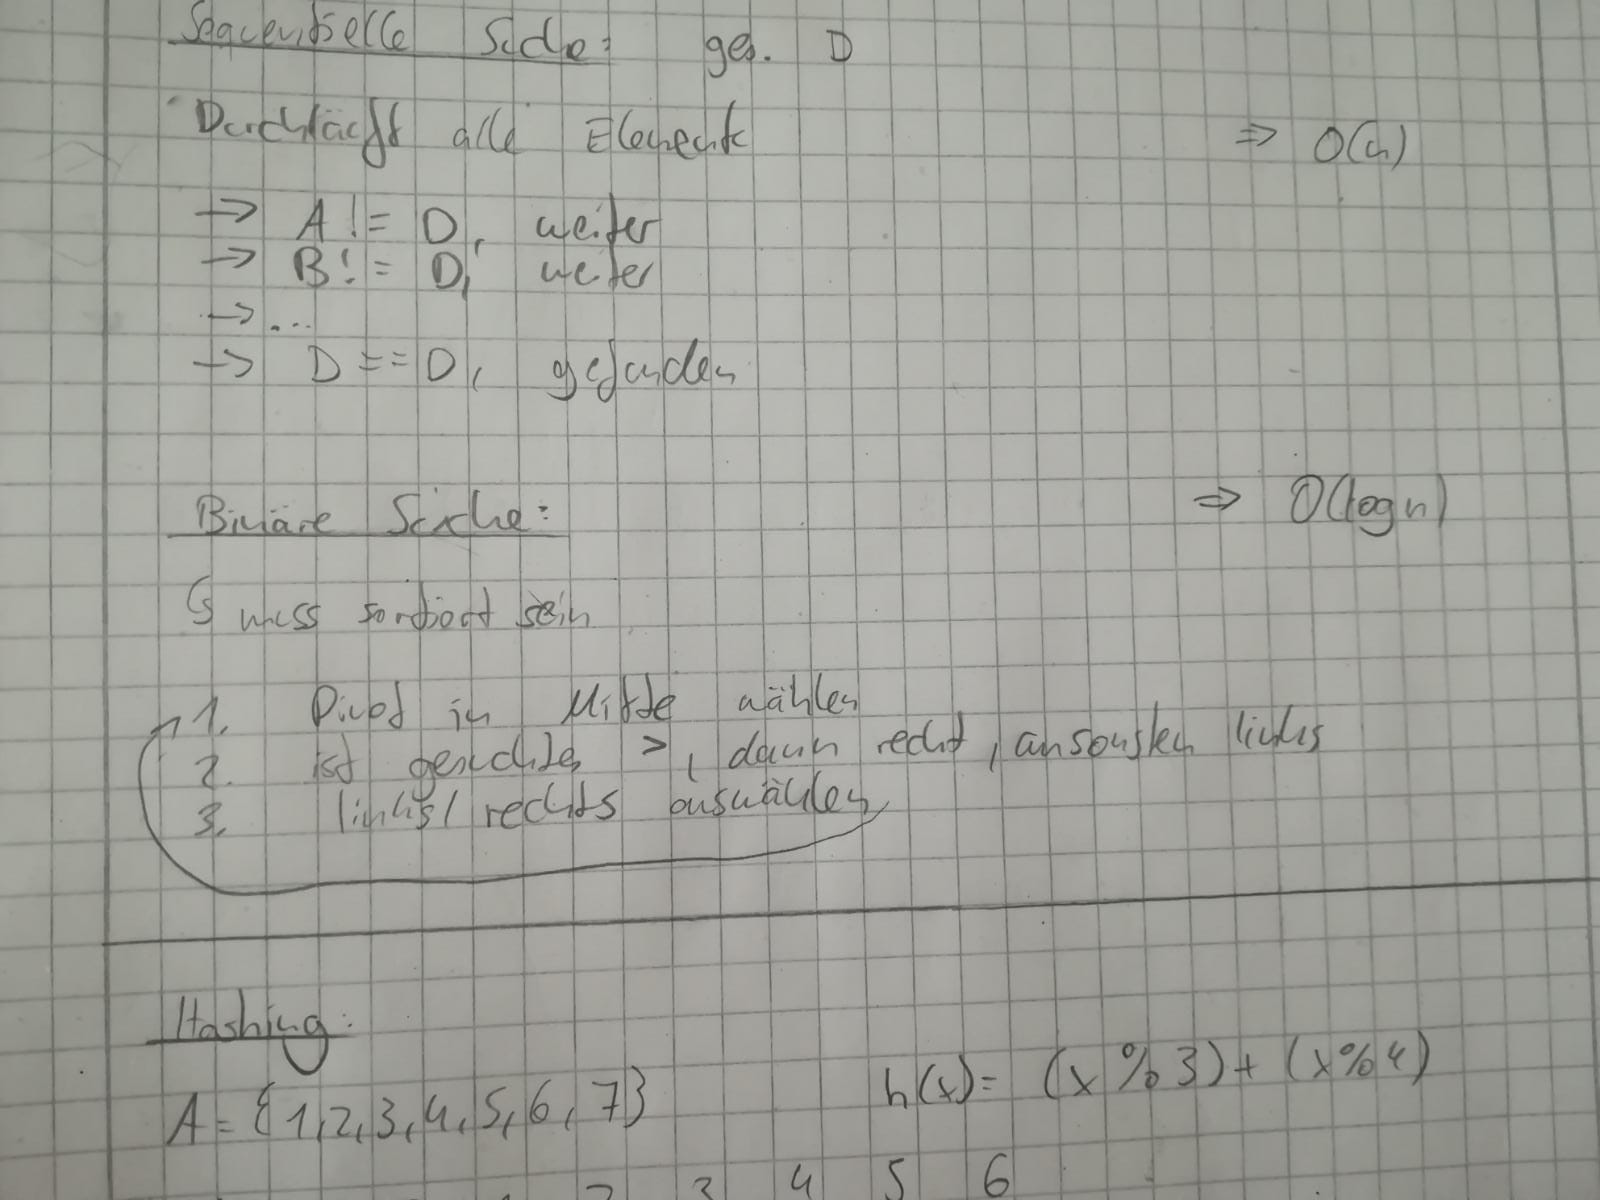 Sequentielle Suche: geg. D
Durchläuft alle Elemente => O(n)
-> A != D, weiter
-> B != D, weiter
-> ...
-> D == D, gefunden
Binäre Suche: => O(log n)
muss sortiert sein
1. Pivot in Mitte wählen
2. ist gesuchtes >, dann recht, ansonsten links
3. links/rechts auswählen
Hashing:
A = {1,2,3,4,5,6,7} h(x) = (x % 3) + (x % 4)
2 3 4 5 6